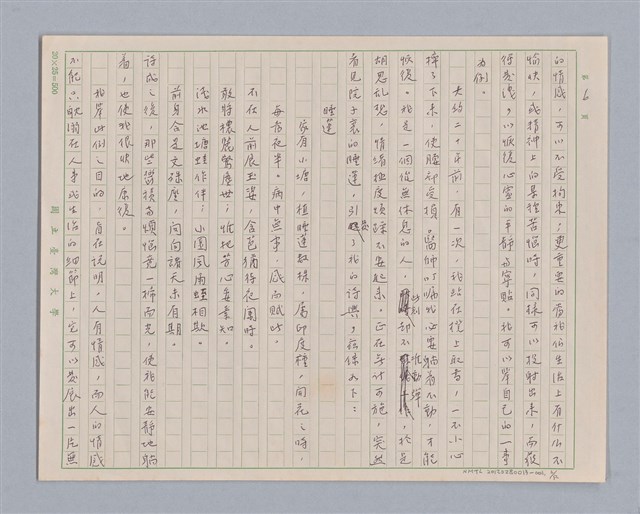 第 6 頁
的情感，可以不受拘束，更重要的當我們生活上有什麼不
愉快，或精神上的某種苦惱時，同樣可以投射出來，而獲
得發洩，以恢復心靈的平靜與寧貼。我可以舉自己的一事
為例。
大約二十年前，有一次，我站在櫈上取書，一不小心
摔了下來，使腰部受損，醫師叮囑我必要躺着不動，才能
恢復。我是一個從無休息的人，此刻卻不准動彈，於是
胡思亂想，情緒極度煩躁不安起來。正在無計可施，突然
看見院子裏的睡蓮，引發了我的詩興，茲條如下：
睡蓮
家有小塘，植睡蓮數株，屬印度種，開花之時，
每當夜半。病中無事，感而賦此。
不在人前展玉姿，含苞猶待夜闌時。
敢將穠麗驚塵世，惟把芳心委素知。
淺水池塘蛙作伴，小園風雨蝶相欺。
前身合是文殊座，問向諸天未有期。
詩成之後，那些鬱積與煩惱竟一掃而光，使我能安靜地躺
着，也使我很快地康復。
我舉此例之目的，旨在說明，人有情感，而人的情感
不能只耽溺在人事或生活的細節上，它可以發展出一片無
20×25＝500
國立臺灣大學